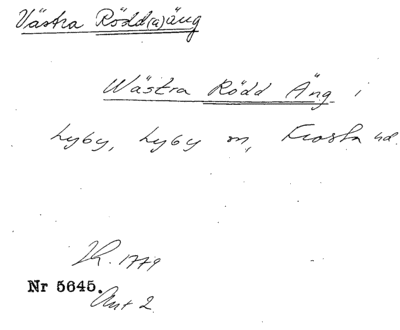 Västra Rödd(a)äng
Wästra Rödd Äng i
Lyby, Lyby sn, Frosta hd.
1779
Nr 5645.
Akt 2